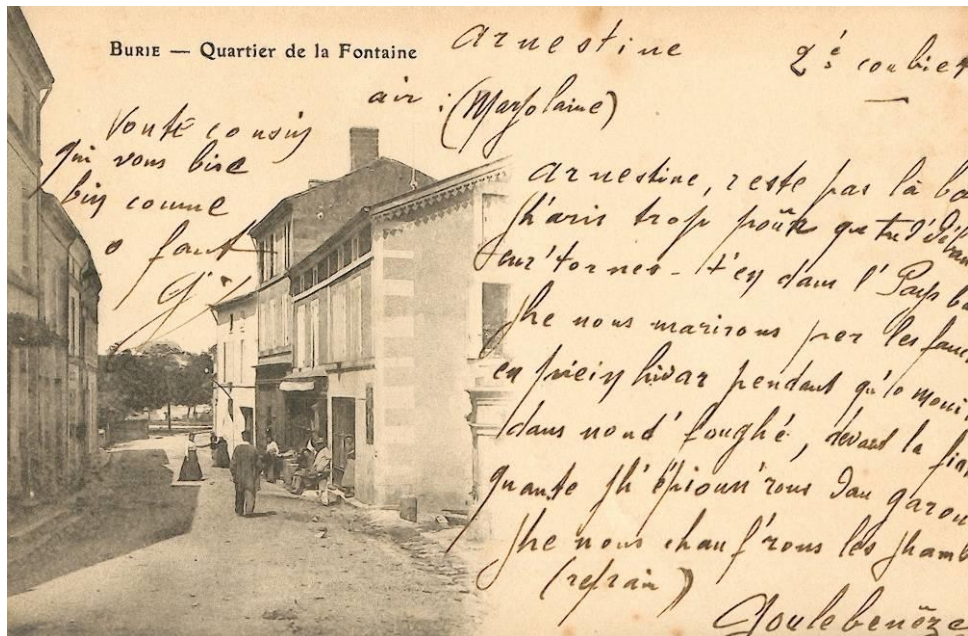 BURIE — Quartier de la Fontaine
Arnestine
2é coubiet
air : (Marjolaine)
Vouté cousin
qui vous bise
bin coume
o faut
Arnestine, reste pas là
jh'aris trop poûr que tu
en'tornes-t'en dans l'Pays
jhe nous marirons per les
en piein hivar pendant qu'o
dans noud' foughé, devant la
quante jh'épioun'rons dau
jhe nous chauf'rons les jhamb
(refrain)
Goulebenèze